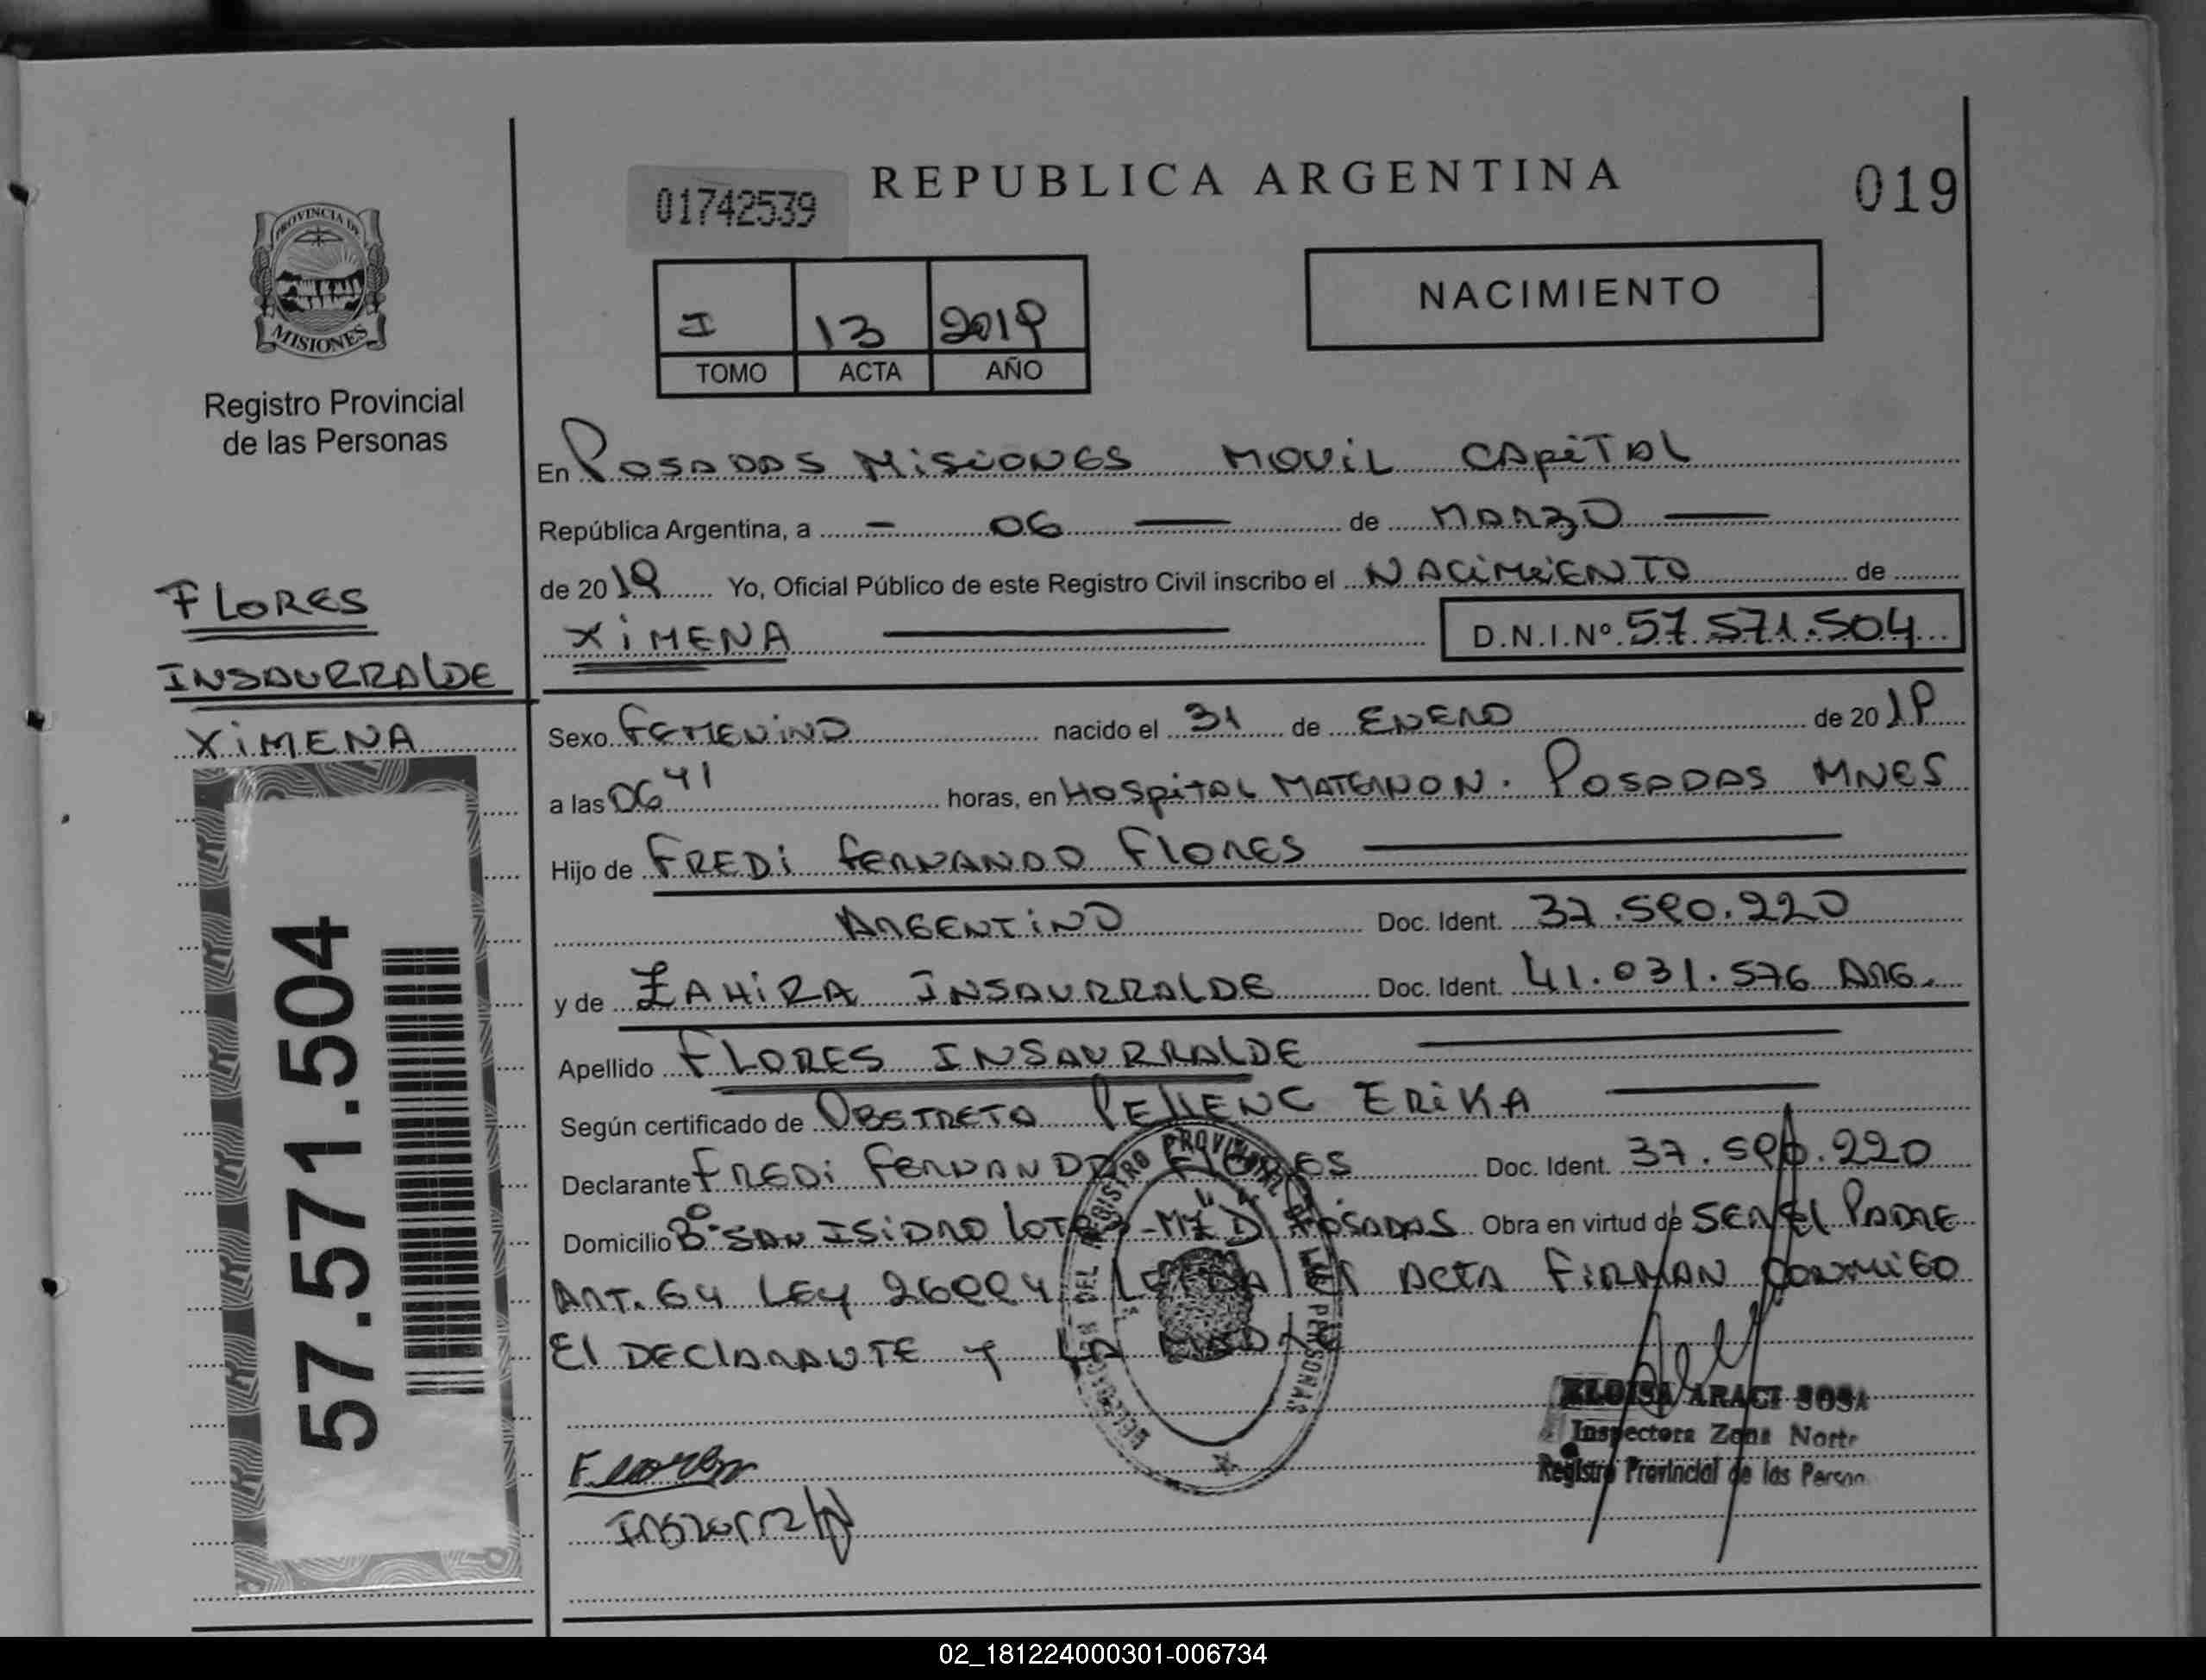 01742539
REPUBLICA ARGENTINA
019
PROVINCIA DE
MISIONES
Registro Provincial
de las Personas
I 13 2019
TOMO ACTA AÑO
NACIMIENTO
En POSADAS MISIONES MOVIL CAPITAL
República Argentina, a - 06 — de MARZO —
de 2019 Yo, Oficial Público de este Registro Civil inscribo el NACIMIENTO de
XIMENA — D.N.I.Nº 57.571.504
FLORES
INSAURRALDE
XIMENA
57.571.504
Sexo FEMENINO nacido el 31 de ENERO de 2019
a las 06 41 horas, en HOSPITAL MATERNON. POSADAS MNES
Hijo de FREDI FERNANDO FLORES —
ARGENTINO Doc. Ident. 37.590.220
y de ZAHIRA INSAURRALDE Doc. Ident. 41.031.576 ARG.
Apellido FLORES INSAURRALDE —
Según certificado de OBSTRETA PELLENC ERIKA —
Declarante FREDI FERNANDO FLORES Doc. Ident. 37.590.220
Domicilio Bº SAN ISIDRO LOTE -MZ D POSADAS Obra en virtud de SER EL PADRE
ART. 64 LEY 26994 LEIDA EL ACTA FIRMAN CONMIGO
El DECLARANTE Y LA MADRE
REGISTRO PROVINCIAL DE LAS PERSONAS
Flores
ELOISA ARACI SOSA
Inspectora Zona Norte
Registro Provincial de las Person
02_181224000301-006734